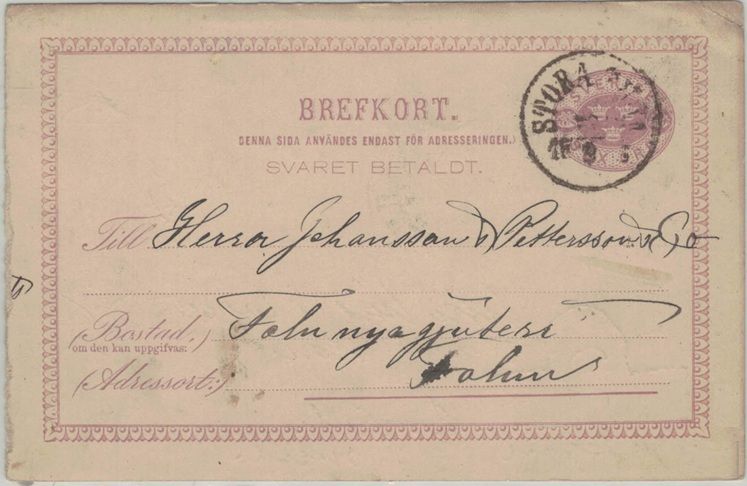 BREFKORT.
(DENNA SIDA ANVÄNDES ENDAST FÖR ADRESSERINGEN.)
SVARET BETALDT.
STORA
Till Herrar Johansson & Pettersson & Co
(Bostad,)
om den kan uppgifvas:
nya gjuteri
(Adressort:)